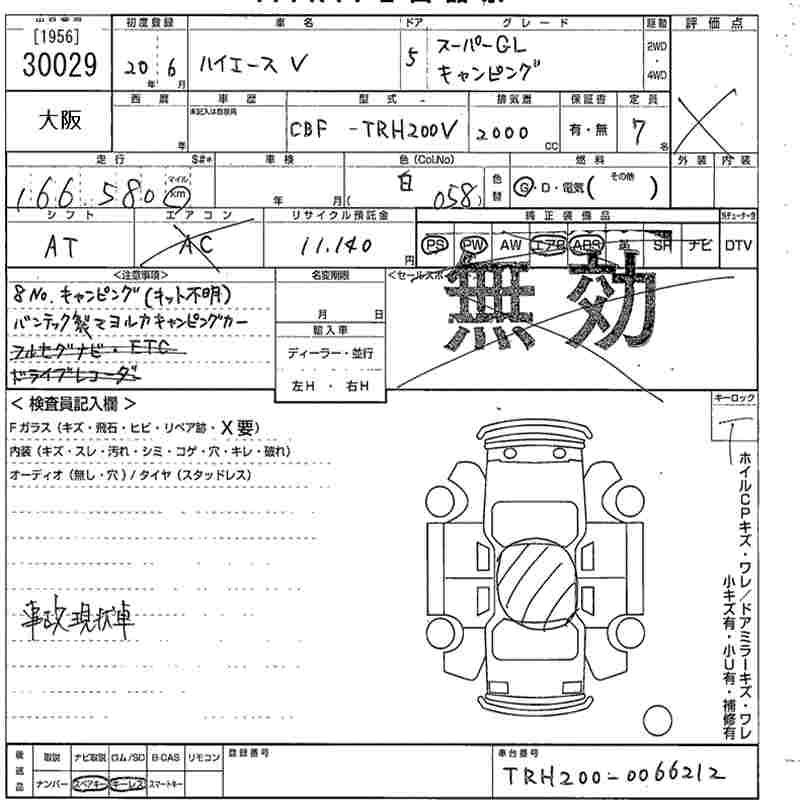 [1956]
30029
初度登録
車名
ドア
グレード
駆動
評価点
20 6
年 月
ハイエース V
5
スーパーGL
キャンピング
2WD
4WD
大阪
西暦
車歴
型式
排気量
保証書
定員
未記入は自家用
年
CBF -TRH200V
2000
CC
有・無
7
名
走行
S#*
車検
色(Col.No)
燃料
外装
内装
166 580
マイル
km
年 月(
白
058)
色替
G・D・電気( その他 )
シフト
エアコン
リサイクル預託金
純正装備品
AT
AC
11.140
円
PS PW AW エアB ABS 革 SR ナビ DTV
<注意事項>
名変期限
8No. キャンピング(キット不明)
バンテック製マヨルカキャンピングカー
フルセグナビ・ETC
ドライブレコーダ
月 日
輸入車
ディーラー・並行
左H・右H
無効
< 検査員記入欄 >
キーロック
Fガラス(キズ・飛石・ヒビ・リペア跡・X要)
内装(キズ・スレ・汚れ・シミ・コゲ・穴・キレ・破れ)
オーディオ(無し・穴)/タイヤ(スタッドレス)
事故現状車
ホイルCPキズ・ワレ/ドアミラーキズ・ワレ
小キズ有・小U有・補修有
後送品
取説 ナビ取説 ロム/SD B-CAS リモコン
ナンバー スペアキー キーレス スマートキー
登録番号
車台番号
TRH200-0066212